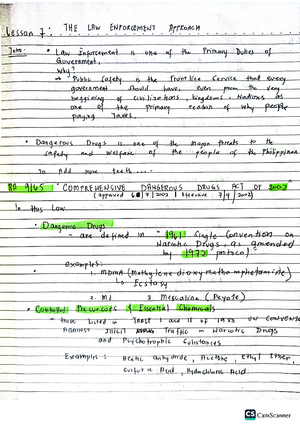 Lesson 7: THE LAW ENFORCEMENT APPROACH
• Law Enforcement is one of the Primary Duties of
Government,
Why?
→ Public Safety is the Frontline Service that every
government should have, Even from the very
beggining of civilizations, kingdoms, Nations as
one of the primary reason of why people
paying taxes.
• Dangerous Drugs is one of the major threats to the
safety and welfare of the people of the Philippines
To add more teeth...
RA 9165: "COMPREHENSIVE DANGEROUS DRUGS ACT OF 2002"
(approved 6/7/2002 | Effective 7/4/2002)
In this Law
• Dangerous Drugs
- are defined in "1961 Single Convention on
Narcotic Drugs, as amended
by 1972 protocol"
examples:
1. MDMA (Methylenedioxymethamphetamine)
↳ Ecstasy
2. MJ 3 Mescaline (Peyote)
• Controlled Precursors & Essential Chemicals
- those Listed in TABLE I and II of 1988 UN CONVENS
AGAINST Illicit Traffic in Narcotic Drugs
and Psychotrophic Substances
Examples: Acetic anhydride, Acetone, Ethyl Ether,
Sulfuric Acid, Hydrochloric Acid
CS CamScanner